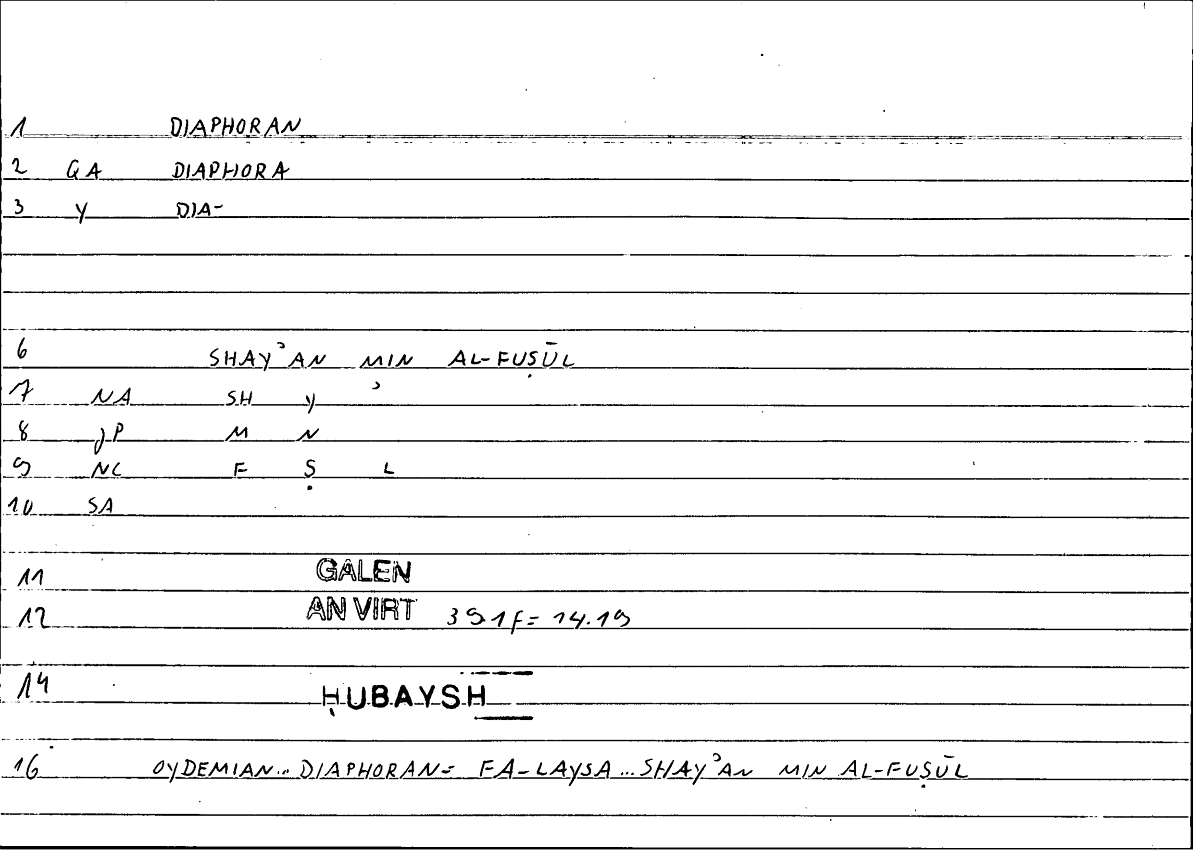 1 DIAPHORAN
2 GA DIAPHORA
3 Y DIA-
6 SHAYʾAN MIN AL-FUṢŪL
7 NA SH Y ʾ
8 JP M N
9 NC F Ṣ L
10 SA
11 GALEN
12 AN VIRT 391F= 14.19
14 ḤUBAYSH
16 OYDEMIAN... DIAPHORAN= FA-LAYSA... SHAYʾAN MIN AL-FUṢŪL